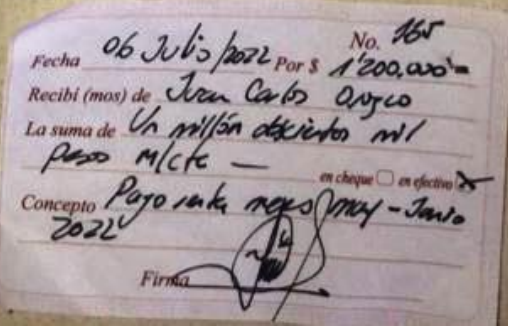 No. 165
Fecha 06 Julio/2022 Por $ 1'200,000=
Recibí (mos) de Juan Carlos Orozco
La suma de Un millón doscientos mil
pesos M/cte —
en cheque en efectivo X
Concepto Pago renta meses May - Junio
2022
Firma